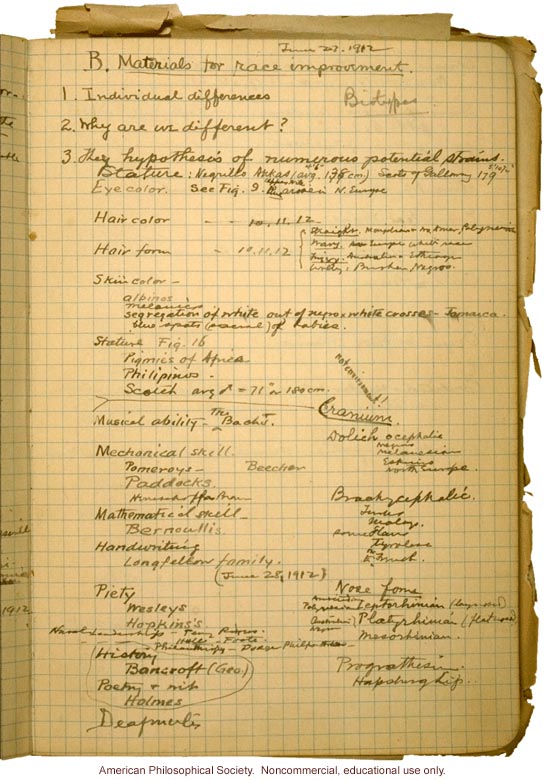 June 27. 1912
B. Materials for race improvement.
1. Individual differences
Biotypes
2. Why are we different?
3. The hypothesis of numerous potential strains.
Stature: Negrillo Akkas (avg. 138 cm) Scots of Galloway 179
Eye color. See Fig. 9. N. Europe
Hair color - - 10, 11, 12
Hair form - - 10, 11, 12
Straight.
Wavy.
Frizzy. Australian &
Woolly, Bushmen, Negroes.
Skin color -
albinos
melanics
segregation of white out of negro x white crosses - Jamaica.
blue spots (sacral) of babies.
Stature Fig. 16
Pigmies of Africa
Philipinos -
Scotch avg ♂ = 71" or 180 cm.
not environment!
Cranium.
Musical ability - The Bachs.
Dolichocephalic
Negroes
Melanesian
Eskimo
North Europe.
Mechanical skill.
Pomeroys - Beecher
Paddocks.
Brachycephalic.
Malays
some Slavs
Tyrolese
French.
Mathematical skill -
Bernoullis.
Handwriting
Longfellow family.
(June 28, 1912)
Piety
Wesleys
Hopkins's
Nose form
Leptorhinian
Platyrhinian (flat nose)
Mesorhinian.
Naval leadership - Perry
Hale - Foote
Philanthropy - Dodge
History
Bancroft (Geo.)
Poetry & wit
Holmes
Prognathism.
Hapsburg lip.
Deafmutes
American Philosophical Society. Noncommercial, educational use only.